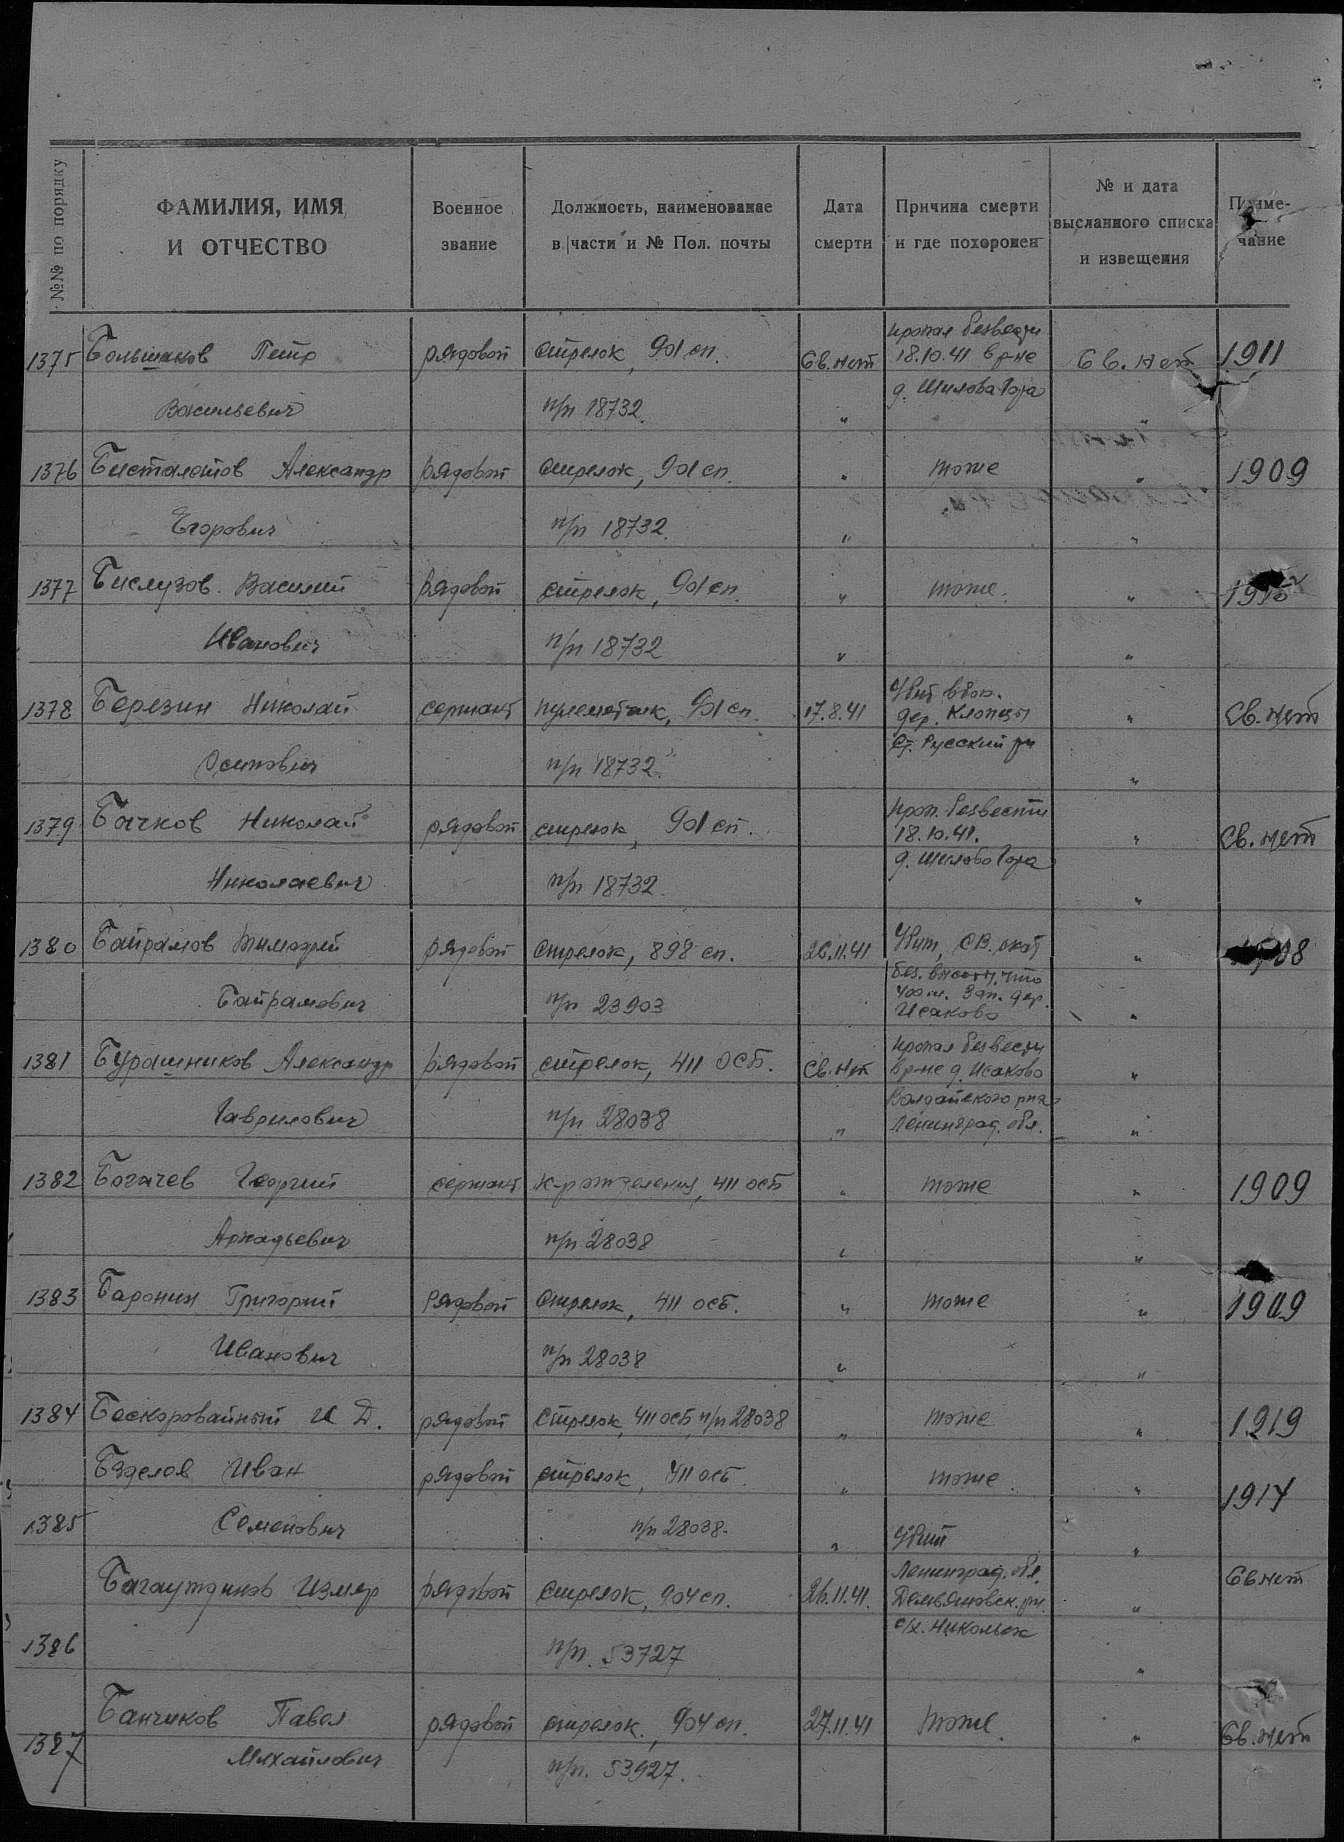 №№ по порядку
ФАМИЛИЯ, ИМЯ И ОТЧЕСТВО
Военное звание
Должность, наименование части и № Пол. почты
Дата смерти
Причина смерти и где похоронен
№ и дата высланного списка и извещения
Примечание
1375 Большаков Петр рядовой стрелок, 901 сп. Св. нет пропал безвести 18.10.41 в р-не Св. нет 1911
Васильевич п/п 18732 " д. Шилова Гора "
1376 Александр рядовой стрелок, 901 сп. " тоже " 1909
Егорович п/п 18732. " "
1377 Бислузов Василий рядовой стрелок, 901 сп. " тоже. "
Иванович п/п 18732 " "
1378 Березин Николай сержант пулеметчик, 901 сп. 17.8.41 Убит в бою. дер. Клопцы " Св. нет
Осипович п/п 18732. Ст. Русский рн "
1379 Бачков Николай рядовой стрелок, 901 сп. проп. безвести 18.10.41. " Св. нет
Николаевич п/п 18732. д. Шилова Гора "
1380 Байрамов рядовой стрелок, 898 сп. 26.11.41 Убит, СВ. скат "
Байрамович п/п 23903 без. 400 м. зап. дер. Исаково "
1381 Бурашников Александр рядовой стрелок, 411 ОСБ. Св. нет пропал безвести в р-не д. Исаково "
Гаврилович п/п 28038 " Валдайского рна Ленинград. обл. "
1382 Богачев Георгий сержант к-р отделения, 411 осб " тоже " 1909
Аркадьевич п/п 28038 " "
1383 Баронин Григорий Рядовой Стрелок, 411 осб. " тоже " 1909
Иванович п/п 28038 " "
1384 Бескоровайный И Д. рядовой стрелок, 411 осб, п/п 28038 " тоже " 1919
Иван рядовой стрелок, 411 осб. " тоже. " 1914
1385 Семенович п/п 28038. " Убит "
Багаутдинов рядовой стрелок, 904 сп. 26.11.41. Ленинград. обл. Демьяновск. рн. " Св нет
1386 п/п. 53727 "
Банчиков Павел рядовой стрелок., 904 сп. 27.11.41 тоже. " Св. нет
1387 Михайлович п/п. 53927.